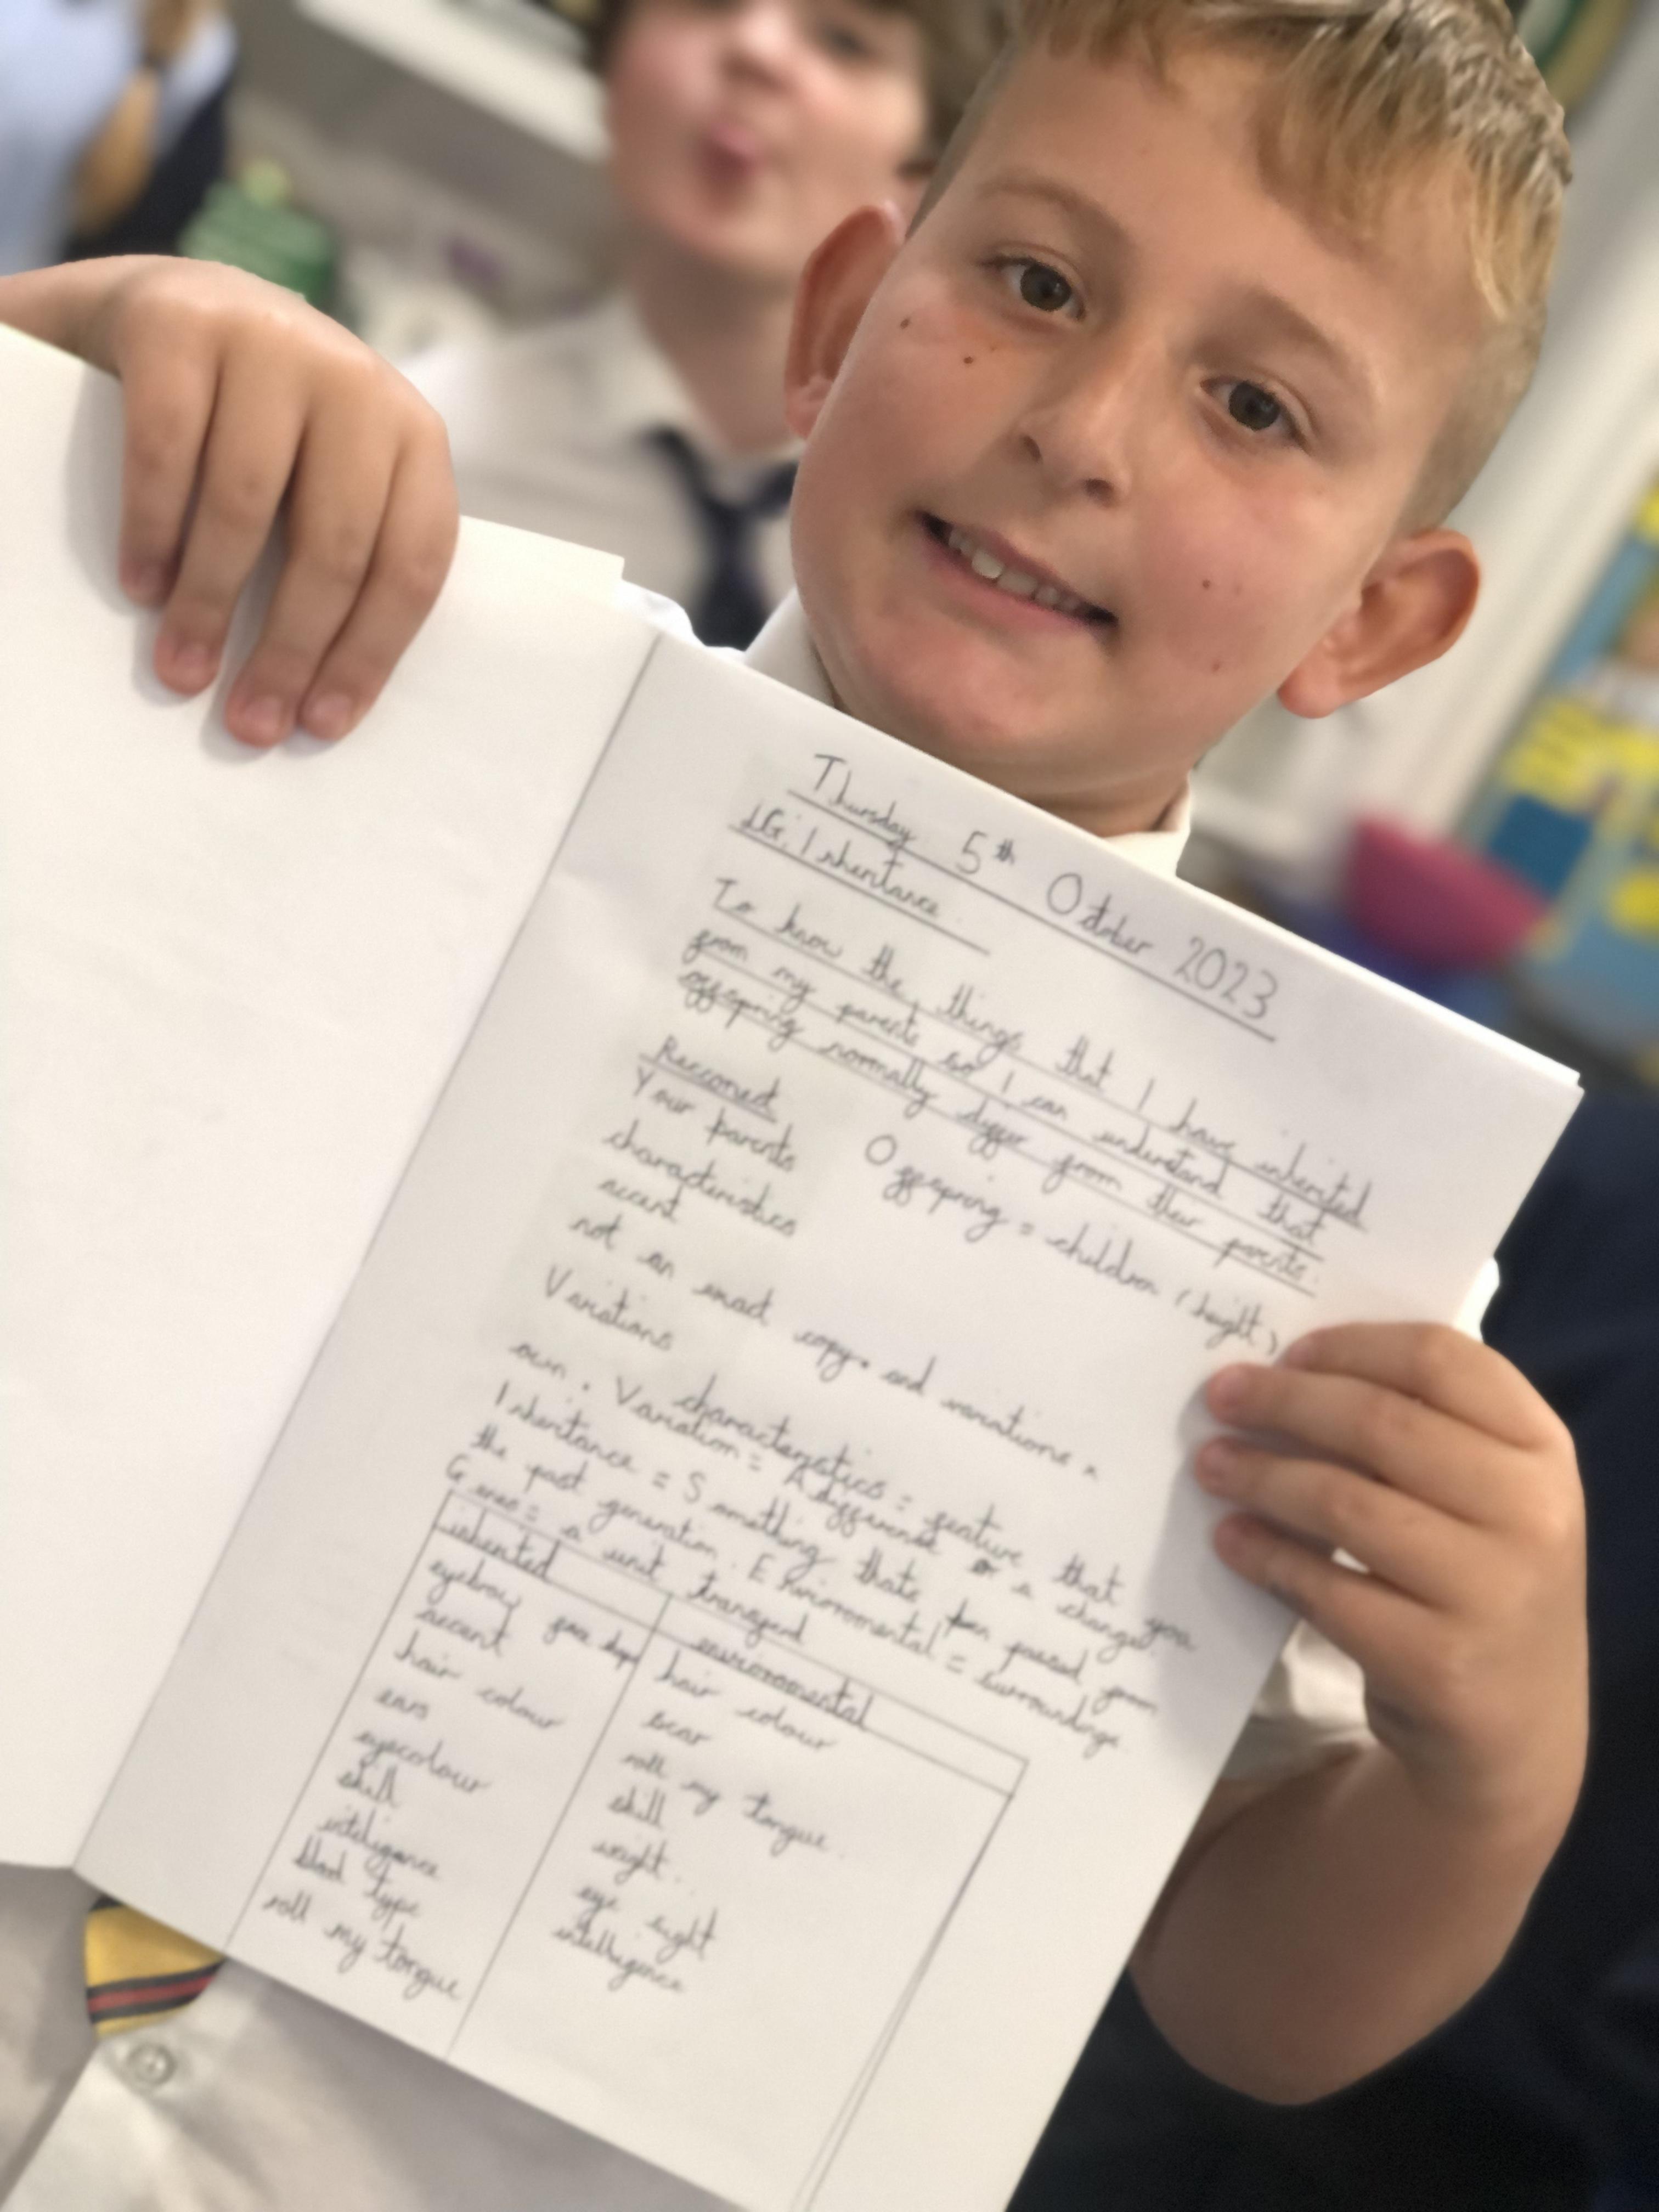 Thursday 5th October 2023
LG: Inheritance.
To know the things that I have inherited
from my parents so I can understand that
offspring normally differ from their parents.
Offspring = children (height)
Your parents
characteristics
accent
not an exact copy. and variations
Variations
characteristics = feature that you
own. Variation = A difference or a change.
Inheritance = Something thats passed from
the past generation. Enviromental = surroundings
Genes = a unit transferd
inherited
enviromental
accent
hair colour
ears
eyecolour
skill
blood type
roll my tongue
hair colour
scar
roll my tongue.
skill
weight.
eye sight
intelligence